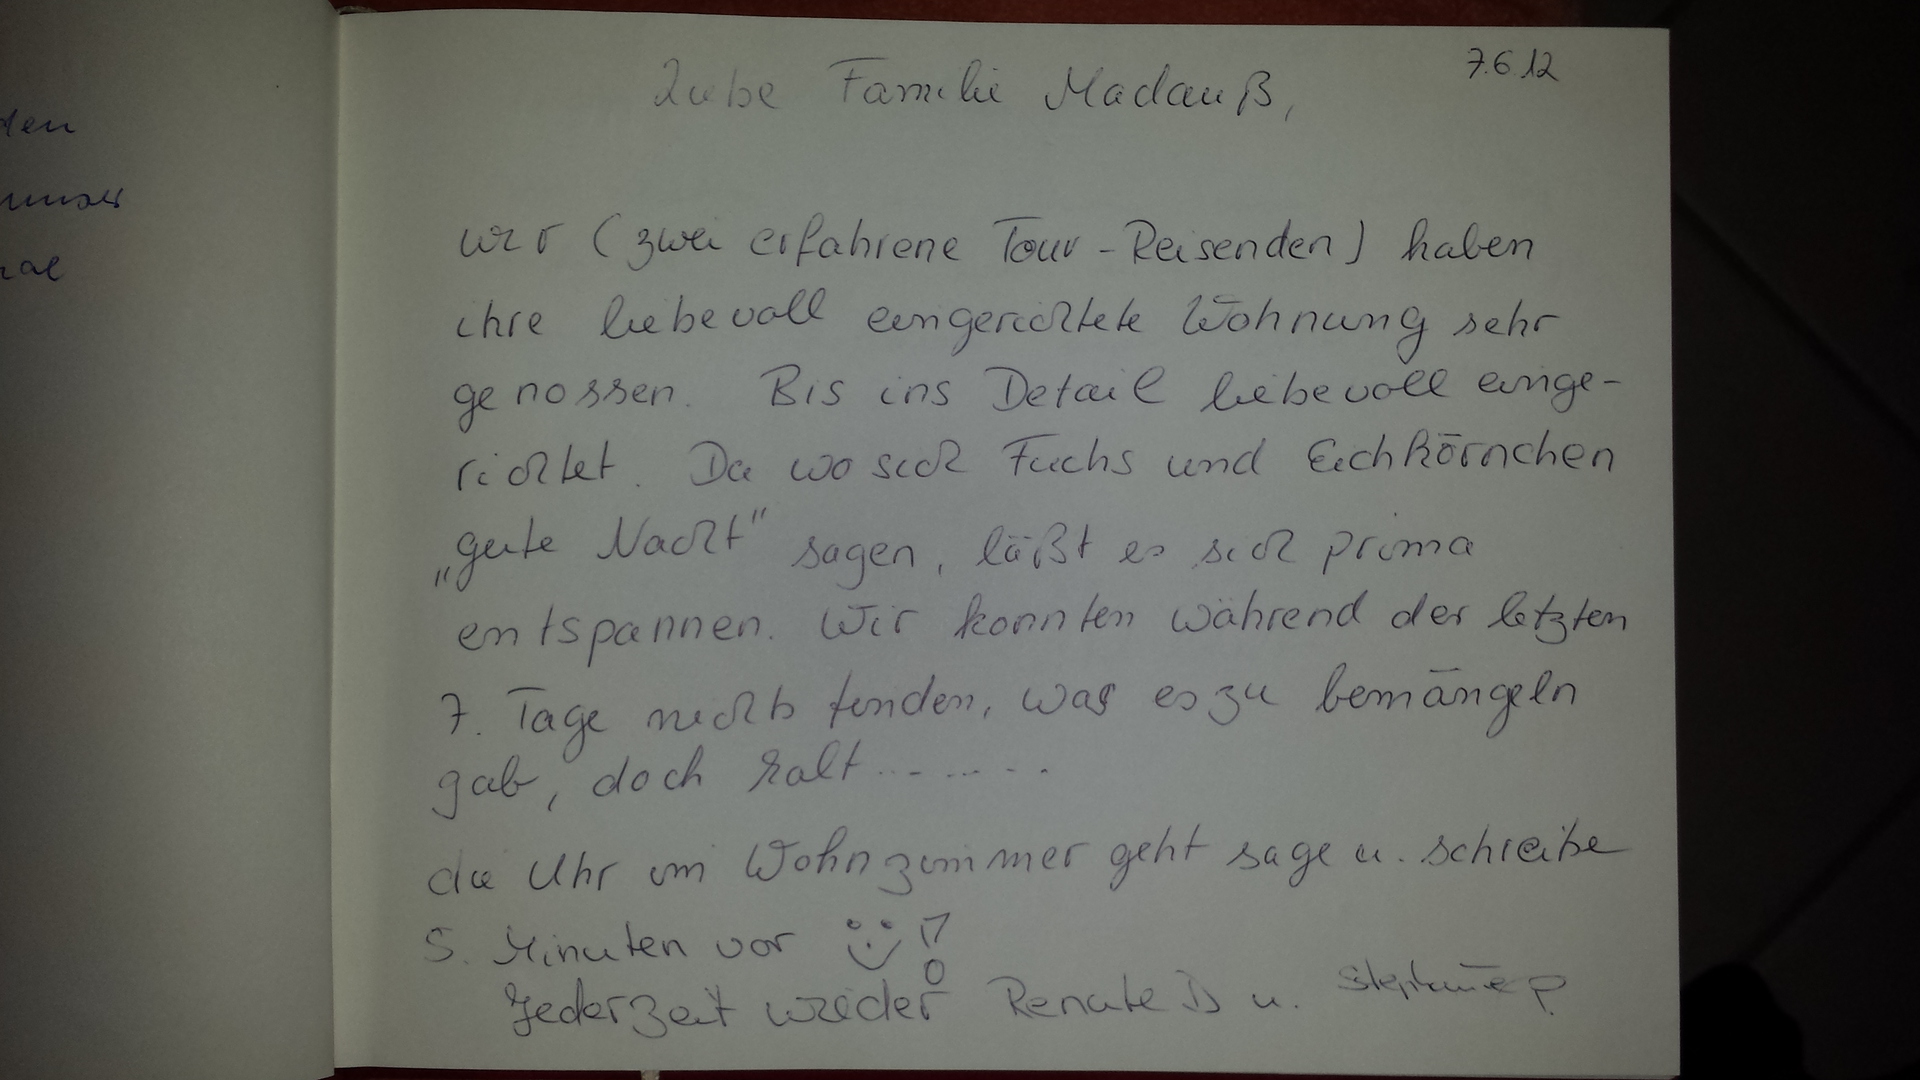 den
7.6.12
Liebe Familie Madauß,
wir (zwei erfahrene Tour-Reisenden) haben
ihre liebevoll eingerichtete Wohnung sehr
genossen. Bis ins Detail liebevoll einge-
richtet. Da wo sich Fuchs und Eichhörnchen
„gute Nacht" sagen, läßt es sich prima
entspannen. Wir konnten während der letzten
7. Tage nichts finden, was es zu bemängeln
gab, doch halt........
die Uhr im Wohnzimmer geht sage u. schreibe
5. Minuten vor
Jederzeit wieder Renate D u. Stephanie P.